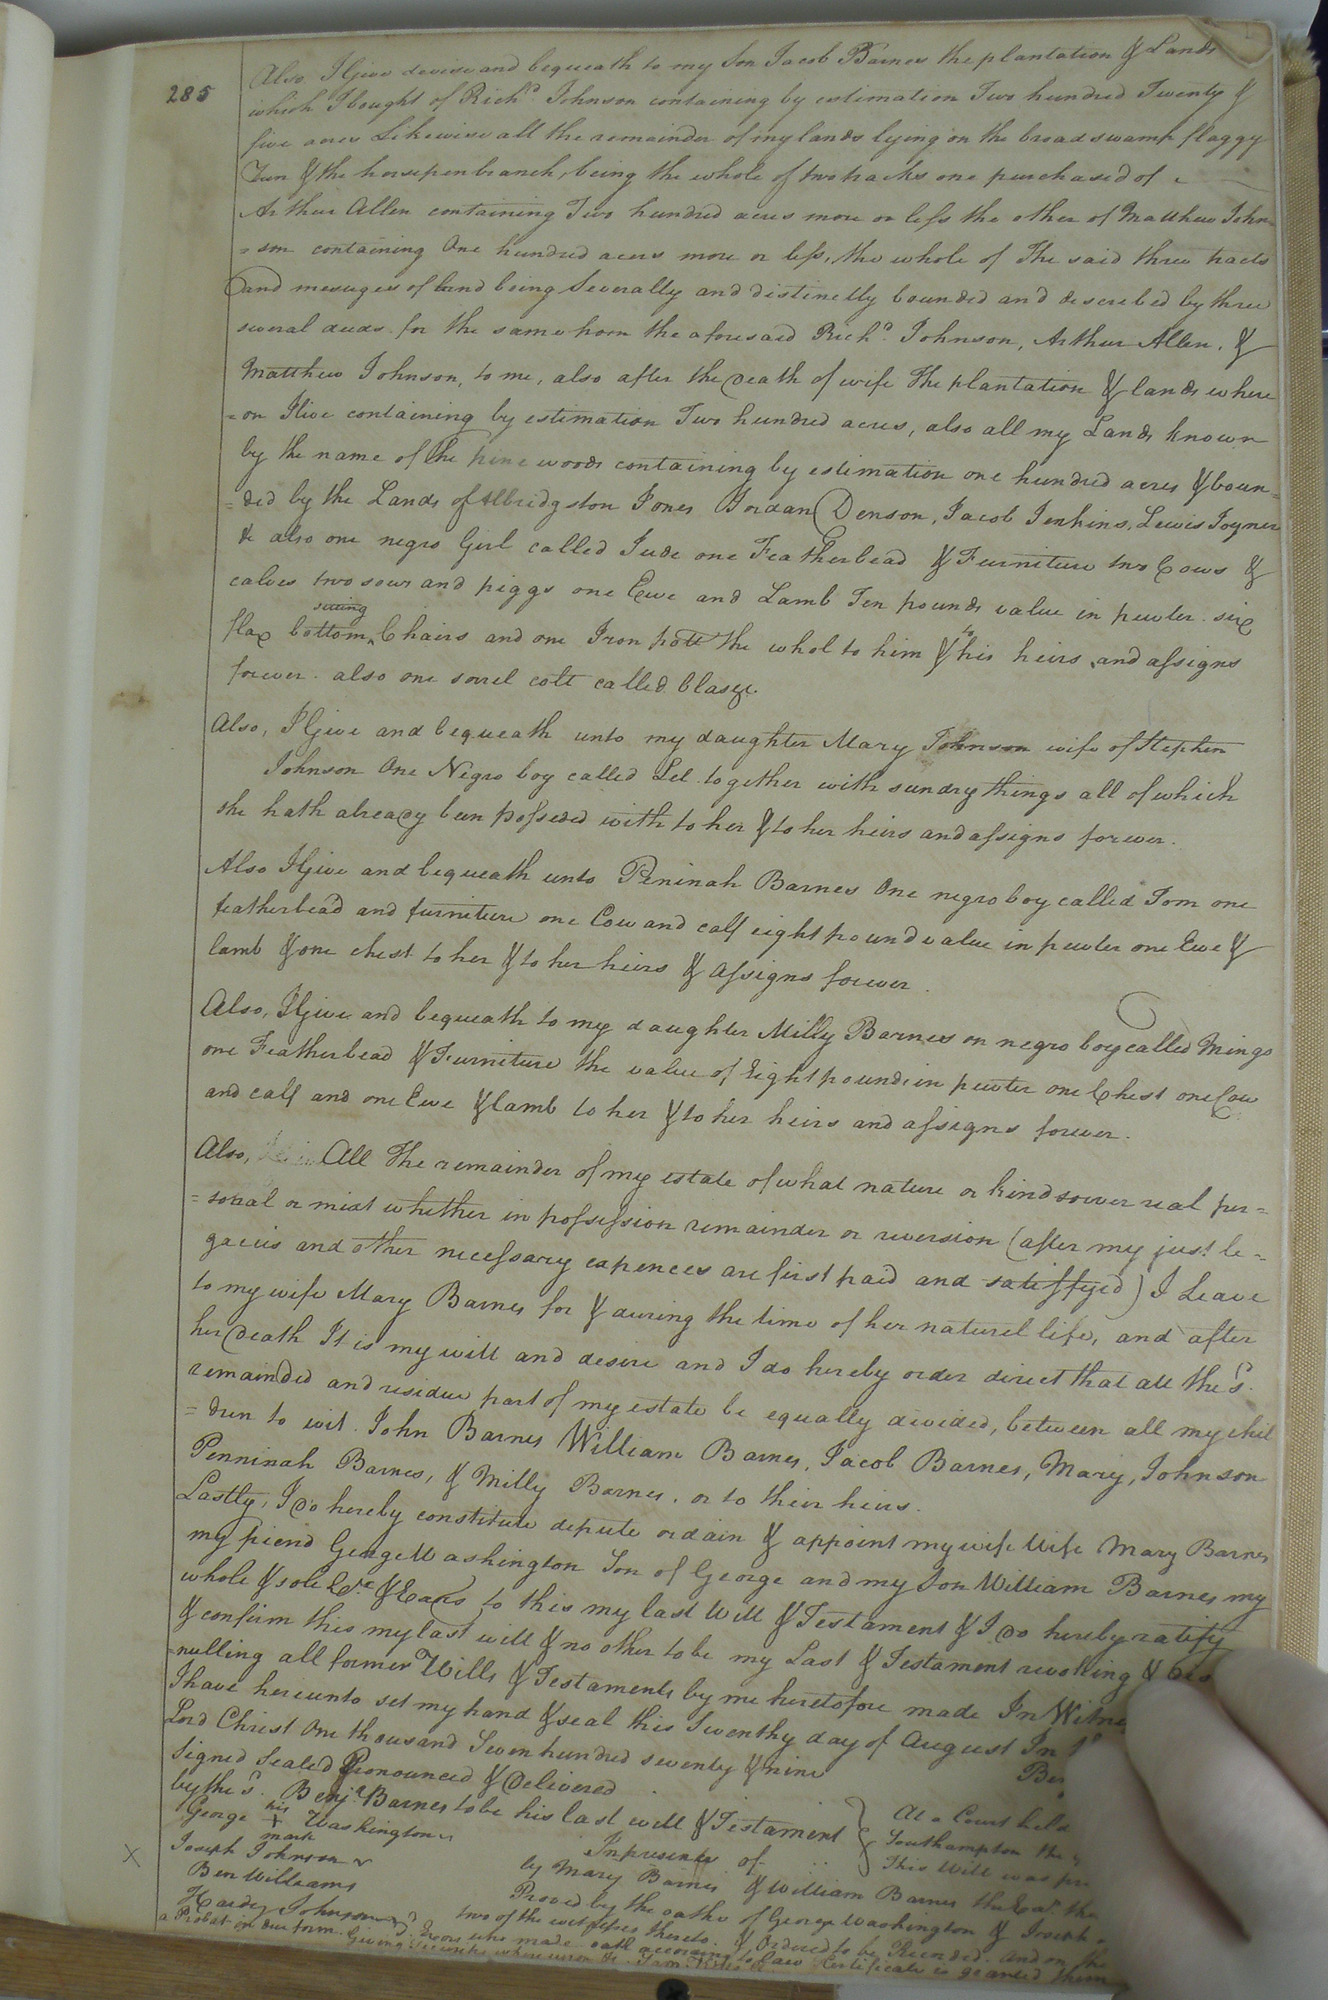 285
Also, I Give devise and bequeath to my Son Jacob Barnes the plantation & Lands
which I bought of Richd. Johnson containing by estimation Two hundred Twenty &
five acres Likewise all the remainder of my lands lying on the broad swamp flaggy
Run & the horsepen branch, being the whole of two tracks one purchased of
Arthur Allen containing Two hundred acres more or less the other of Matthew John=
=son containing One hundred acres more or less, the whole of The said three tracts
and mesuges of land being Severally and distinctly bounded and described by three
several deeds for the same from the aforesaid Richd. Johnson, Arthur Allen, &
Matthew Johnson, to me, also after the Death of wife The plantation & lands where
=on I live containing by estimation Two hundred acres, also all my Lands known
by the name of the pine woods containing by estimation one hundred acres & boun=
=ded by the Lands of Albridgston Jones Jordan Denson, Jacob Jenkins, Lewis Joyner
& also one negro Girl called Jude one Featherbead & Furniture two Cows &
calves two sows and piggs one Ewe and Lamb Ten pounds value in pewter six
flag bottom sitting Chairs and one Iron pott the whol to him & to his heirs and assigns
forever. also one sorrel colt called blaze.
Also, I Give and bequeath unto my daughter Mary Johnson wife of Stephen
Johnson One Negro boy called Lel together with sundry things all of which
she hath already been possesed with to her & to her heirs and assigns forever.
Also I Give and bequeath unto Peninah Barnes One negro boy called Tom one
featherbead and furniture one Cow and calf eight pound value in pewter one Ewe &
lamb & one chest to her & to her heirs & assigns forever.
Also, I Give and bequeath to my daughter Milly Barnes on negro boy called Mingo
one Featherbead & Furniture the value of Eight pounds in pewter one Chest one Cow
and calf and one Ewe & lamb to her & to her heirs and assigns forever.
Also, All The remainder of my estate of what nature or kind soever real per=
=sonal or mixt whether in possession remainder or reversion (after my just le=
gacies and other necessary expences are first paid and satisfyed) I Leave
to my wife Mary Barnes for & during the time of her naturel life, and after
her Death It is my will and desire and I do hereby order direct that all the sd.
remainded and residue part of my estate be equally divided, between all my chil
=dren to wit. John Barnes William Barnes, Jacob Barnes, Mary, Johnson
Penninah Barnes, & Milly Barnes, or to their heirs.
Lastly, I Do hereby constitute depute ordain & appoint my wife Wife Mary Barnes
my friend George Washington Son of George and my Son William Barnes my
whole & sole & Exers to this my last Will & Testament & I Do hereby ratify
& confirm this my last will & no other to be my Last & Testament revoking & Dis
=nulling all former Wills & Testaments by me heretofore made In Witne
I have hereunto set my hand & seal this Twenthy day of August In
Lord Christ One thousand Seven hundred seventy & nine
Signed Sealed Pronounced & Delivered Ben
by the sd. Benja. Barnes to be his last will & Testament
In presents of
George his x mark Washington
Joseph Johnson
Ben Williams
Hardy Johnson
At a Court held
Southampton the
This Will was pre
by Mary Barnes & William Barnes the Exrs. the
Proved by the oaths of George Washington & Joseph
two of the witnesses thereto & Ordered to be Recorded. And on the
Exors who made oath according to Law Certificate is granted them
a Probat in due form. Giving Security